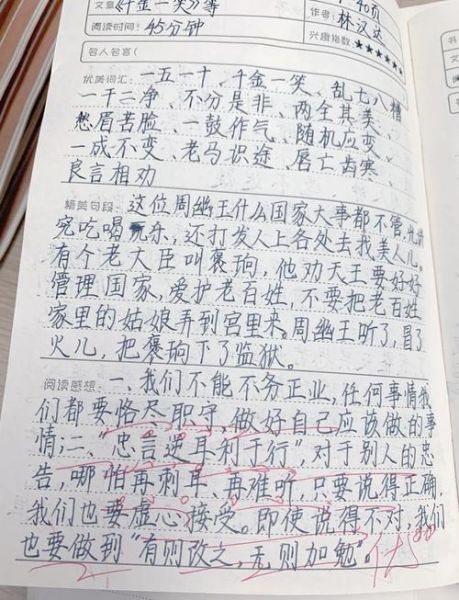 文章《千金一笑》等
40页
阅读时间：45分钟
作者：林汉达
兴趣指数：★★★★★★
名人名言（
优美词汇：一五一十、千金一笑、乱七八糟
一干二净、不分是非、两全其美、
愁眉苦脸、一鼓作气、随机应变、
一成不变、老马识途、唇亡齿寒、
良言相劝
精美句段：这位周幽王什么国家大事都不管，光讲
究吃喝玩乐，还打发人上各处去找美人儿。
有个老大臣叫褒珦，他劝天王要好好
管理国家，爱护老百姓，不要把老百姓
家里的姑娘弄到宫里来。周幽王听了，冒了
火儿，把褒珦下了监狱。
阅读感想：一、我们不能不务正业，任何事情我
们都要恪尽职守，做好自己应该做的事
情；二、“忠言逆耳利于行”对于别人的忠
告，哪怕再刺耳、再难听，只要说得正确，
我们也要虚心接受。即使说得不对，我们
也要做到“有则改之，无则加勉”。
优